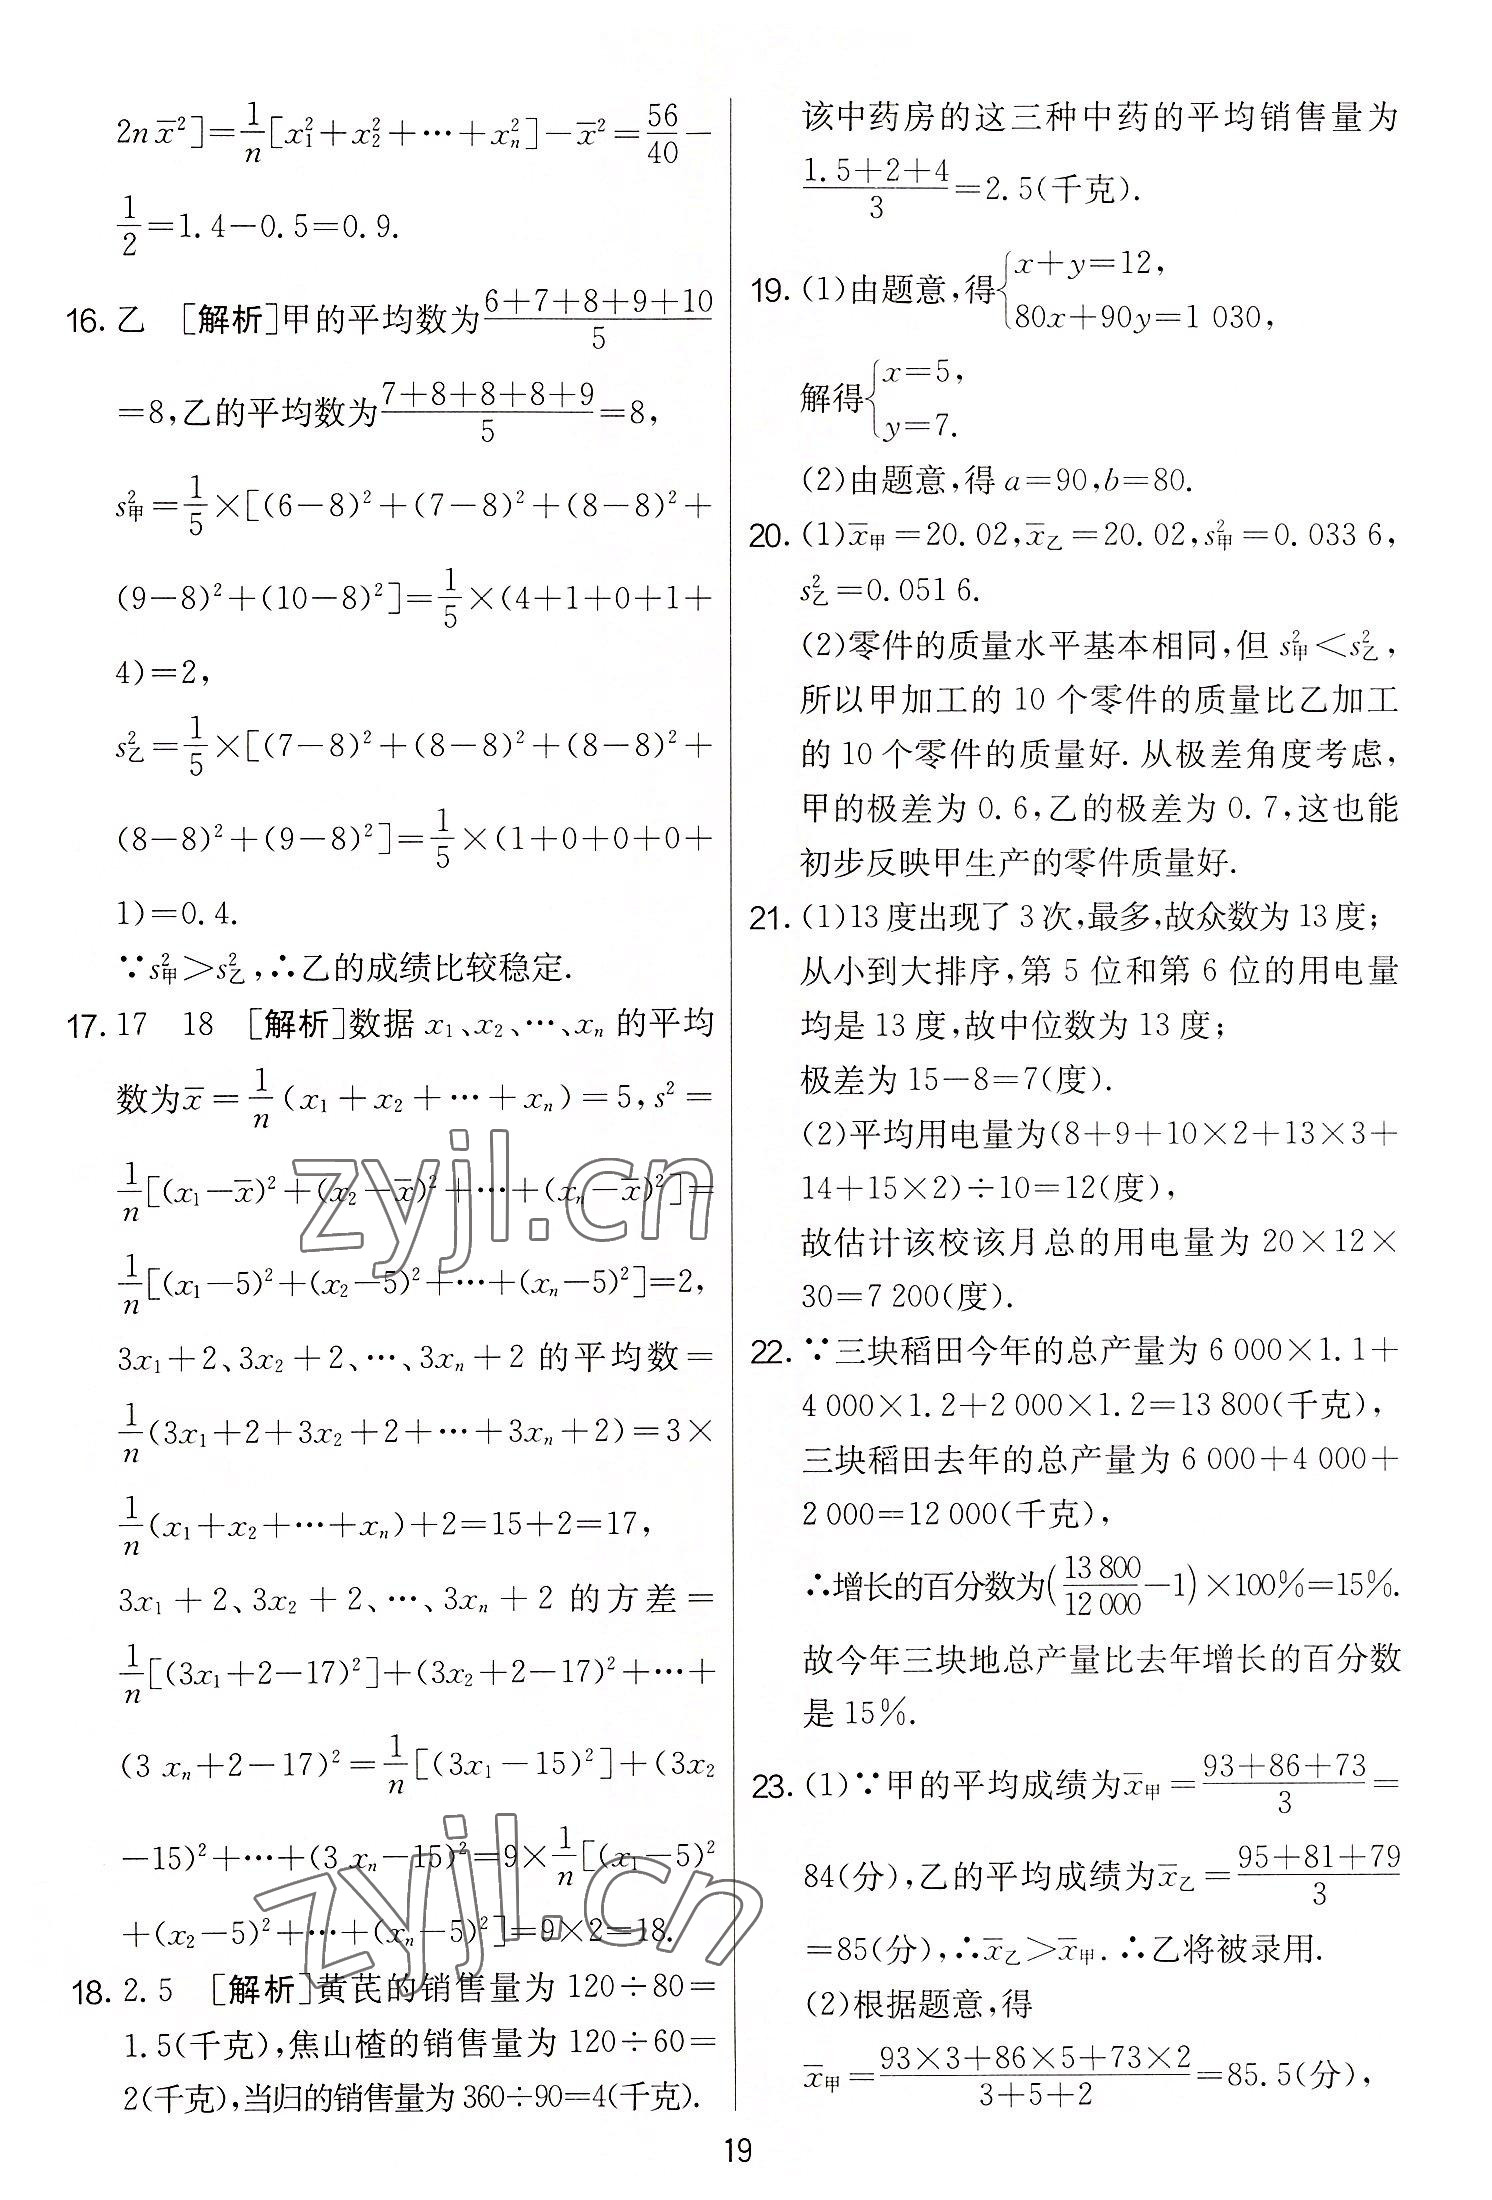 2n x̄²]=1/n[x₁²+x₂²+⋯+xₙ²]-x̄²=56/40-
1/2=1.4-0.5=0.9.
16. 乙 [解析]甲的平均数为(6+7+8+9+10)/5
=8,乙的平均数为(7+8+8+8+9)/5=8,
s²甲=1/5×[(6-8)²+(7-8)²+(8-8)²+
(9-8)²+(10-8)²]=1/5×(4+1+0+1+
4)=2,
s²乙=1/5×[(7-8)²+(8-8)²+(8-8)²+
(8-8)²+(9-8)²]=1/5×(1+0+0+0+
1)=0.4.
∵s²甲>s²乙,∴乙的成绩比较稳定.
17. 17 18 [解析]数据 x₁、x₂、⋯、xₙ 的平均
数为x̄=1/n(x₁+x₂+⋯+xₙ)=5,s²=
1/n[(x₁-x̄)²+(x₂-x̄)²+⋯+(xₙ-x̄)²]=
1/n[(x₁-5)²+(x₂-5)²+⋯+(xₙ-5)²]=2,
3x₁+2、3x₂+2、⋯、3xₙ+2 的平均数=
1/n(3x₁+2+3x₂+2+⋯+3xₙ+2)=3×
1/n(x₁+x₂+⋯+xₙ)+2=15+2=17,
3x₁+2、3x₂+2、⋯、3xₙ+2 的方差=
1/n[(3x₁+2-17)²]+(3x₂+2-17)²+⋯+
(3 xₙ+2-17)²=1/n[(3x₁-15)²]+(3x₂
-15)²+⋯+(3 xₙ-15)²=9×1/n[(x₁-5)²
+(x₂-5)²+⋯+(xₙ-5)²]=9×2=18.
18. 2.5 [解析]黄芪的销售量为 120÷80=
1.5(千克),焦山楂的销售量为 120÷60=
2(千克),当归的销售量为 360÷90=4(千克).
该中药房的这三种中药的平均销售量为
(1.5+2+4)/3=2.5(千克).
19. (1)由题意,得{x+y=12,
80x+90y=1 030,
解得{x=5,
y=7.
(2)由题意,得 a=90,b=80.
20. (1)x̄甲=20.02,x̄乙=20.02,s²甲=0.033 6,
s²乙=0.051 6.
(2)零件的质量水平基本相同,但 s²甲<s²乙,
所以甲加工的 10 个零件的质量比乙加工
的 10 个零件的质量好.从极差角度考虑,
甲的极差为 0.6,乙的极差为 0.7,这也能
初步反映甲生产的零件质量好.
21. (1)13 度出现了 3 次,最多,故众数为 13 度;
从小到大排序,第 5 位和第 6 位的用电量
均是 13 度,故中位数为 13 度;
极差为 15-8=7(度).
(2)平均用电量为(8+9+10×2+13×3+
14+15×2)÷10=12(度),
故估计该校该月总的用电量为 20×12×
30=7 200(度).
22. ∵三块稻田今年的总产量为 6 000×1.1+
4 000×1.2+2 000×1.2=13 800(千克),
三块稻田去年的总产量为 6 000+4 000+
2 000=12 000(千克),
∴增长的百分数为(13 800/12 000-1)×100%=15%.
故今年三块地总产量比去年增长的百分数
是 15%.
23. (1)∵甲的平均成绩为x̄甲=(93+86+73)/3=
84(分),乙的平均成绩为x̄乙=(95+81+79)/3
=85(分),∴x̄乙>x̄甲.∴乙将被录用.
(2)根据题意,得
x̄甲=(93×3+86×5+73×2)/(3+5+2)=85.5(分),
19
zyjl.cn
zyjl.cn